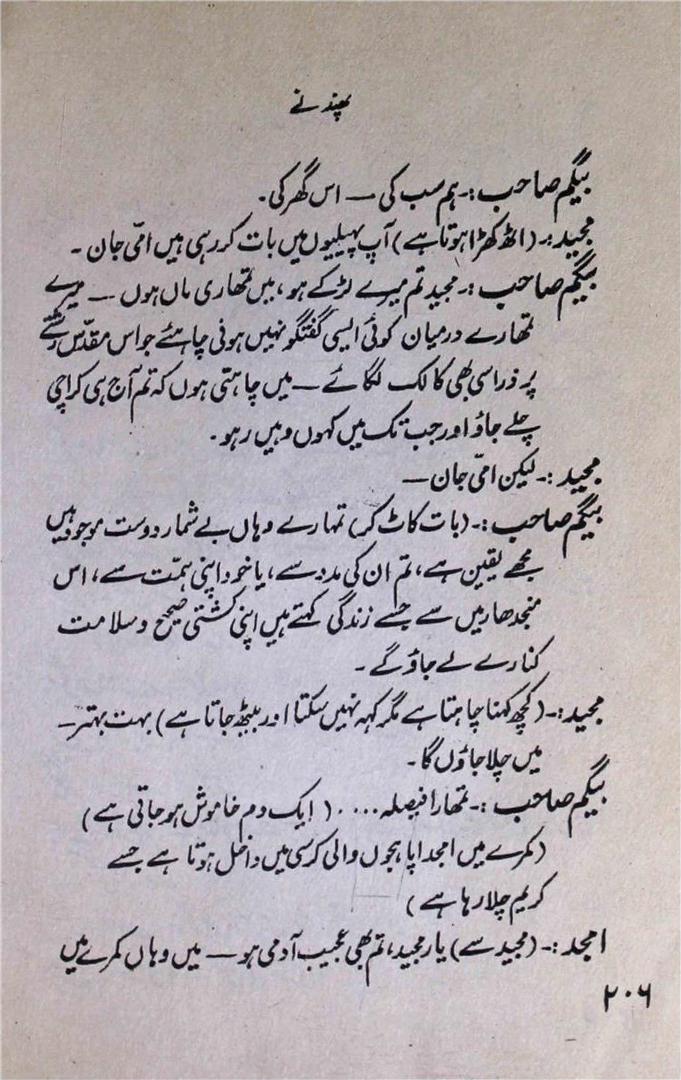 پھندنے
بیگم صاحب :۔ ہم سب کی — اس گھر کی۔
مجید :۔ (اٹھ کھڑا ہوتا ہے) آپ پہیلیوں میں بات کر رہی ہیں امّی جان ۔
بیگم صاحب :۔ مجید تم میرے لڑکے ہو، میں تمھاری ماں ہوں — میرے
تمھارے درمیان کوئی ایسی گفتگو نہیں ہونی چاہئے جو اس مقدّس رشتے
پر ذرا سی بھی کالک لگائے — میں چاہتی ہوں کہ تم آج ہی کراچی
چلے جاؤ اور جب تک میں کہوں وہیں رہو ۔
مجید :۔ لیکن امّی جان —
بیگم صاحب :۔ (بات کاٹ کر) تمہارے وہاں بے شمار دوست موجود ہیں
مجھے یقین ہے، تم ان کی مدد سے، یا خود اپنی ہمّت سے، اس
منجدھار میں سے جسے زندگی کہتے ہیں اپنی کشتی صحیح و سلامت
کنارے لے جاؤ گے ۔
مجید :۔ (کچھ کہنا چاہتا ہے مگر کہہ نہیں سکتا اور بیٹھ جاتا ہے) بہت بہتر —
میں چلا جاؤں گا ۔
بیگم صاحب :۔ تمھارا فیصلہ .... ( ایک دم خاموش ہو جاتی ہے )
(کمرے میں امجد اپاہجوں والی کرسی میں داخل ہوتا ہے جسے
کریم چلا رہا ہے )
امجد :۔ (مجید سے) یار مجید، تم بھی عجیب آدمی ہو — میں وہاں کمرے میں
۲۰۶